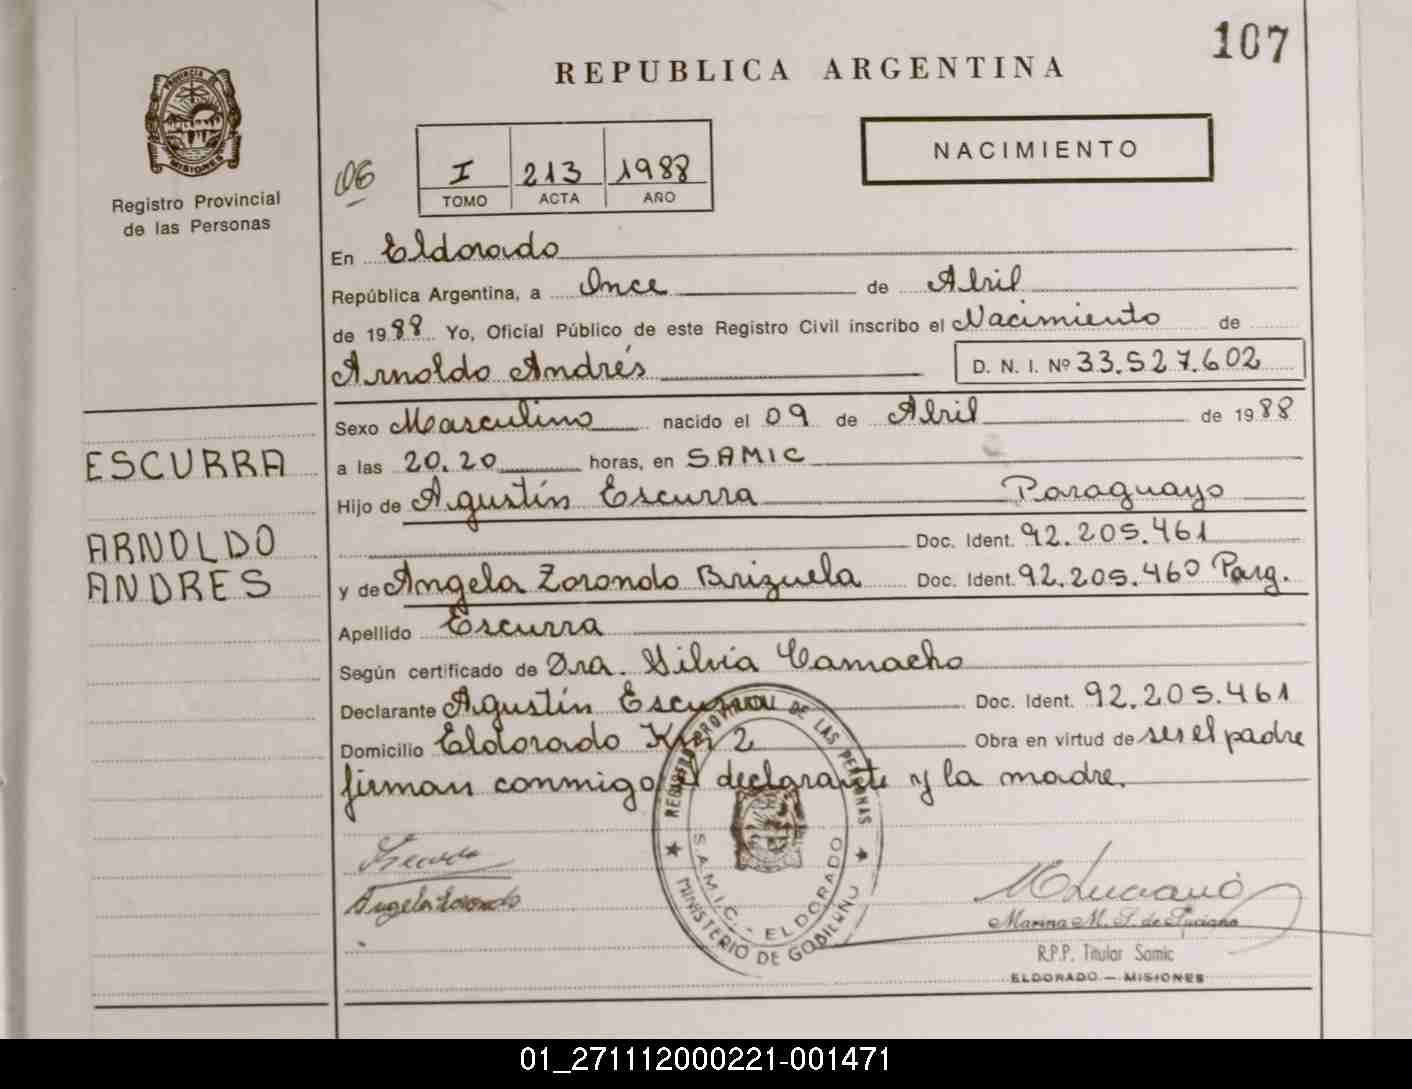 107
REPUBLICA ARGENTINA
PROVINCIA DE MISIONES
Registro Provincial
de las Personas
06
I 213 1988
TOMO ACTA AÑO
NACIMIENTO
En Eldorado
República Argentina, a Once de Abril
de 1988 Yo, Oficial Público de este Registro Civil inscribo el Nacimiento de
Arnoldo Andrés D. N. I. Nº 33.527.602
Sexo Masculino nacido el 09 de Abril de 1988
ESCURRA
a las 20.20 horas, en SAMIC
Hijo de Agustín Escurra Paraguayo
ARNOLDO
Doc. Ident. 92.205.461
ANDRES
y de Angela Zorondo Brizuela Doc. Ident. 92.205.460 Parg.
Apellido Escurra
Según certificado de Dra. Silvia Camacho
Declarante Agustín Escurra Doc. Ident. 92.205.461
Domicilio Eldorado Km 2 Obra en virtud de ser el padre
firman conmigo el declarante y la madre.
REGISTRO PROVINCIAL DE LAS PERSONAS
S.A.M.I.C. - ELDORADO
MINISTERIO DE GOBIERNO
Angela Zorondo
Marina M. de Luciano
R.P.P. Titular Samic
ELDORADO — MISIONES
01_271112000221-001471